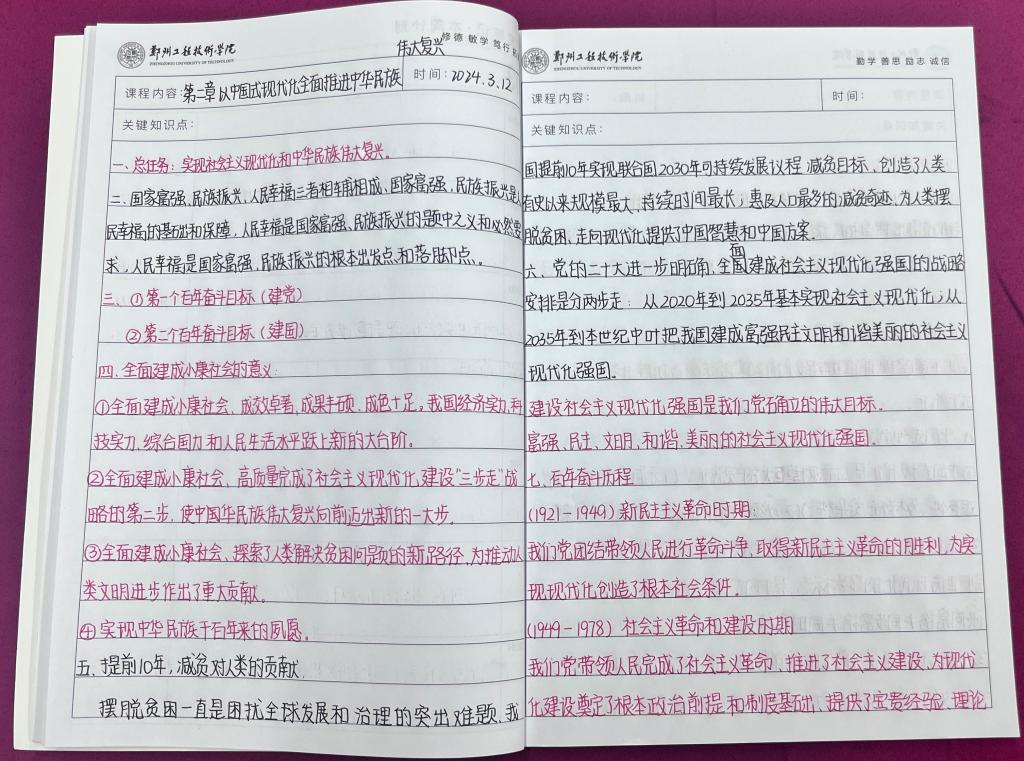 郑州工程技术学院
ZHENGZHOU UNIVERSITY OF TECHNOLOGY
修德 敏学 笃行
伟大复兴
课程内容：第二章以中国式现代化全面推进中华民族
时间：2024.3.12
关键知识点：
一、总任务：实现社会主义现代化和中华民族伟大复兴。
二、国家富强，民族振兴，人民幸福三者相辅相成、国家富强，民族振兴是人
民幸福的基础和保障，人民幸福是国家富强、民族振兴的题中之义和必然要
求，人民幸福是国家富强，民族振兴的根本出发点和落脚点。
三、①第一个百年奋斗目标（建党）
②第二个百年奋斗目标（建国）
四、全面建成小康社会的意义：
①全面建成小康社会，成效卓著，成果丰硕，成色十足，我国经济实力，科
技实力，综合国力和人民生活水平跃上新的大台阶。
②全面建成小康社会，高质量完成了社会主义现代化建设“三步走”战
略的第二步，使中国华民族伟大复兴向前迈出新的一大步。
③全面建成小康社会、探索了人类解决贫困问题的新路径，为推动人
类文明进步作出了重大贡献。
④实现中华民族千百年来的夙愿。
五、提前10年，减贫对人类的贡献.
摆脱贫困一直是困扰全球发展和治理的突出难题，我
郑州工程技术学院
ZHENGZHOU UNIVERSITY OF TECHNOLOGY
勤学 善思 励志 诚信
课程内容：
时间：
关键知识点：
国提前10年实现联合国2030年可持续发展议程减贫目标、创造了人类
有史以来规模最大，持续时间最长，惠及人口最多的减贫奇迹，为人类摆
脱贫困、走向现代化提供了中国智慧和中国方案.
六、党的二十大进一步明确，全面建成社会主义现代化强国的战略
安排是分两步走：从2020年到2035年基本实现社会主义现代化；从
2035年到本世纪中叶把我国建成富强民主文明和谐美丽的社会主义
现代化强国.
建设社会主义现代化强国是我们党确立的伟大目标.
富强、民主、文明、和谐、美丽的社会主义现代化强国.
七、百年奋斗历程
(1921－1949)新民主主义革命时期：
我们党团结带领人民进行革命斗争，取得新民主主义革命的胜利，为实
现现代化创造了根本社会条件.
(1949－1978) 社会主义革命和建设时期
我们党带领人民完成了社会主义革命，推进了社会主义建设，为现代
化建设奠定了根本政治前提和制度基础，提供了宝贵经验、理论